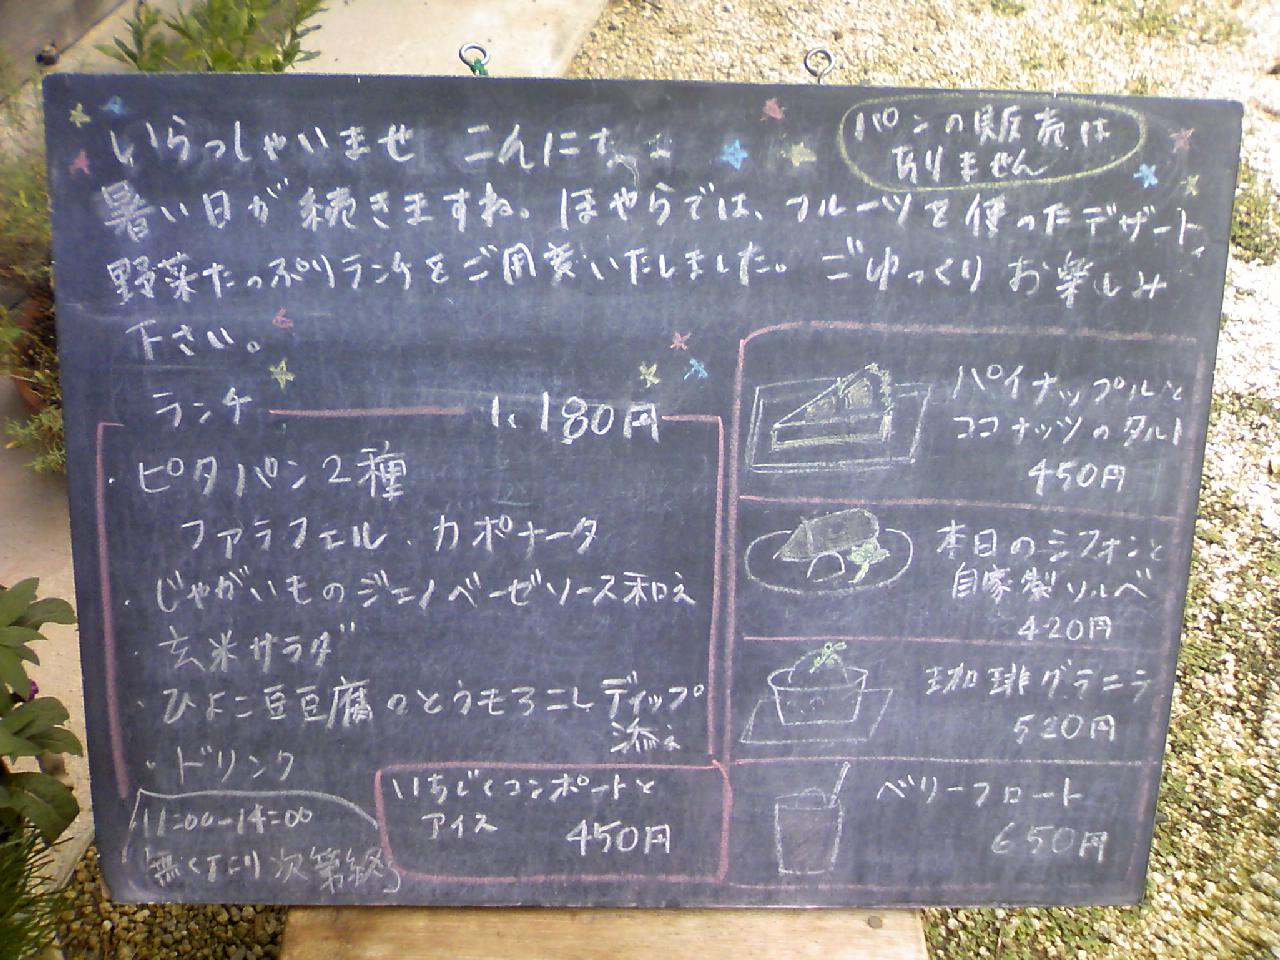 いらっしゃいませ こんにち
パンの販売は
ありません
暑い日が続きますね。ほやらでは、フルーツを使ったデザート、
野菜たっぷりランチをご用意いたしました。ごゆっくりお楽しみ
下さい。
ランチ 1,180円
・ピタパン2種
ファラフェル、カポナータ
・じゃがいものジェノベーゼソース和え
・玄米サラダ
・ひよこ豆豆腐のとうもろこしディップ
添え
・ドリンク
11:00-14:00
無くなり次第終了
いちじくコンポートと
アイス 450円
パイナップルと
ココナッツのタルト
450円
本日のシフォンと
自家製ソルベ
420円
珈琲グラニテ
520円
ベリーフロート
650円